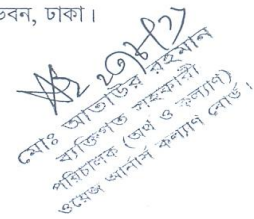 ভবন, ঢাকা।
মোঃ আতাউর রহমান
ব্যক্তিগত সহকারী
পরিচালক (অর্থ ও কল্যাণ)
ওয়েজ আর্নার্স কল্যাণ বোর্ড।